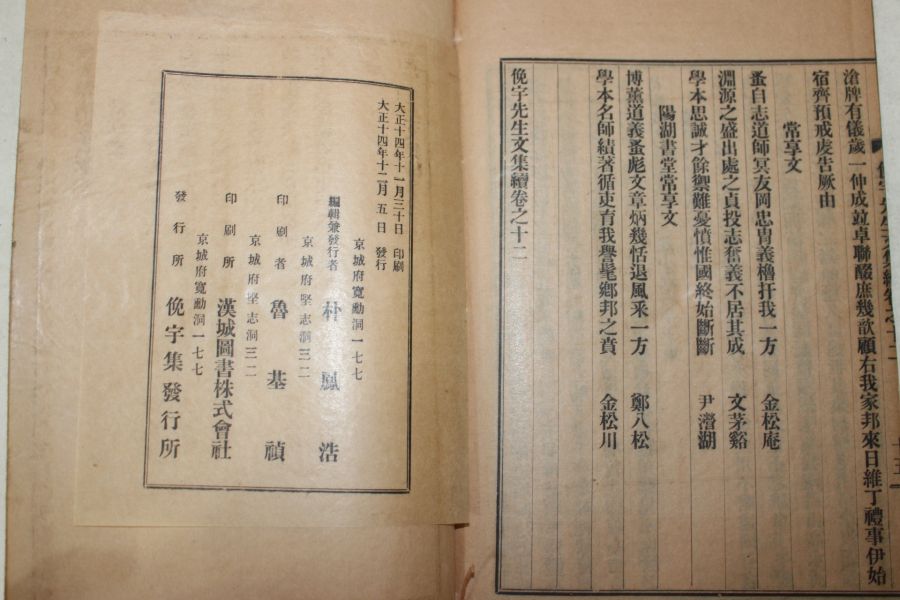 滄牌有儀歲一仲成竝卓聯醊庶幾歆顧右我家邦來日維丁禮事伊始
宿齊預戒虔告厥由
常享文
蚤自志道師冥友岡忠冑義櫓扞我一方 金松庵
淵源之盛出處之貞投志奮義不居其成 文茅谿
學本思誠才餘禦難憂憤惟國終始斷斷 尹濳湖
陽湖書堂常享文
博薰道義蚤彪文章炳幾恬退風釆一方 鄭八松
學本名師績著循吏育我譽髦鄕邦之賁 金松川
俛宇先生文集續卷之十二
大正十四年十一月三十日 印刷
大正十四年十二月五日 發行
京城府寬勳洞一七七
編輯兼發行者 朴鳳浩
京城府堅志洞三二
印刷者 魯基禎
京城府堅志洞三二
印刷所 漢城圖書株式會社
京城府寬勳洞一七七
發行所 俛宇集發行所